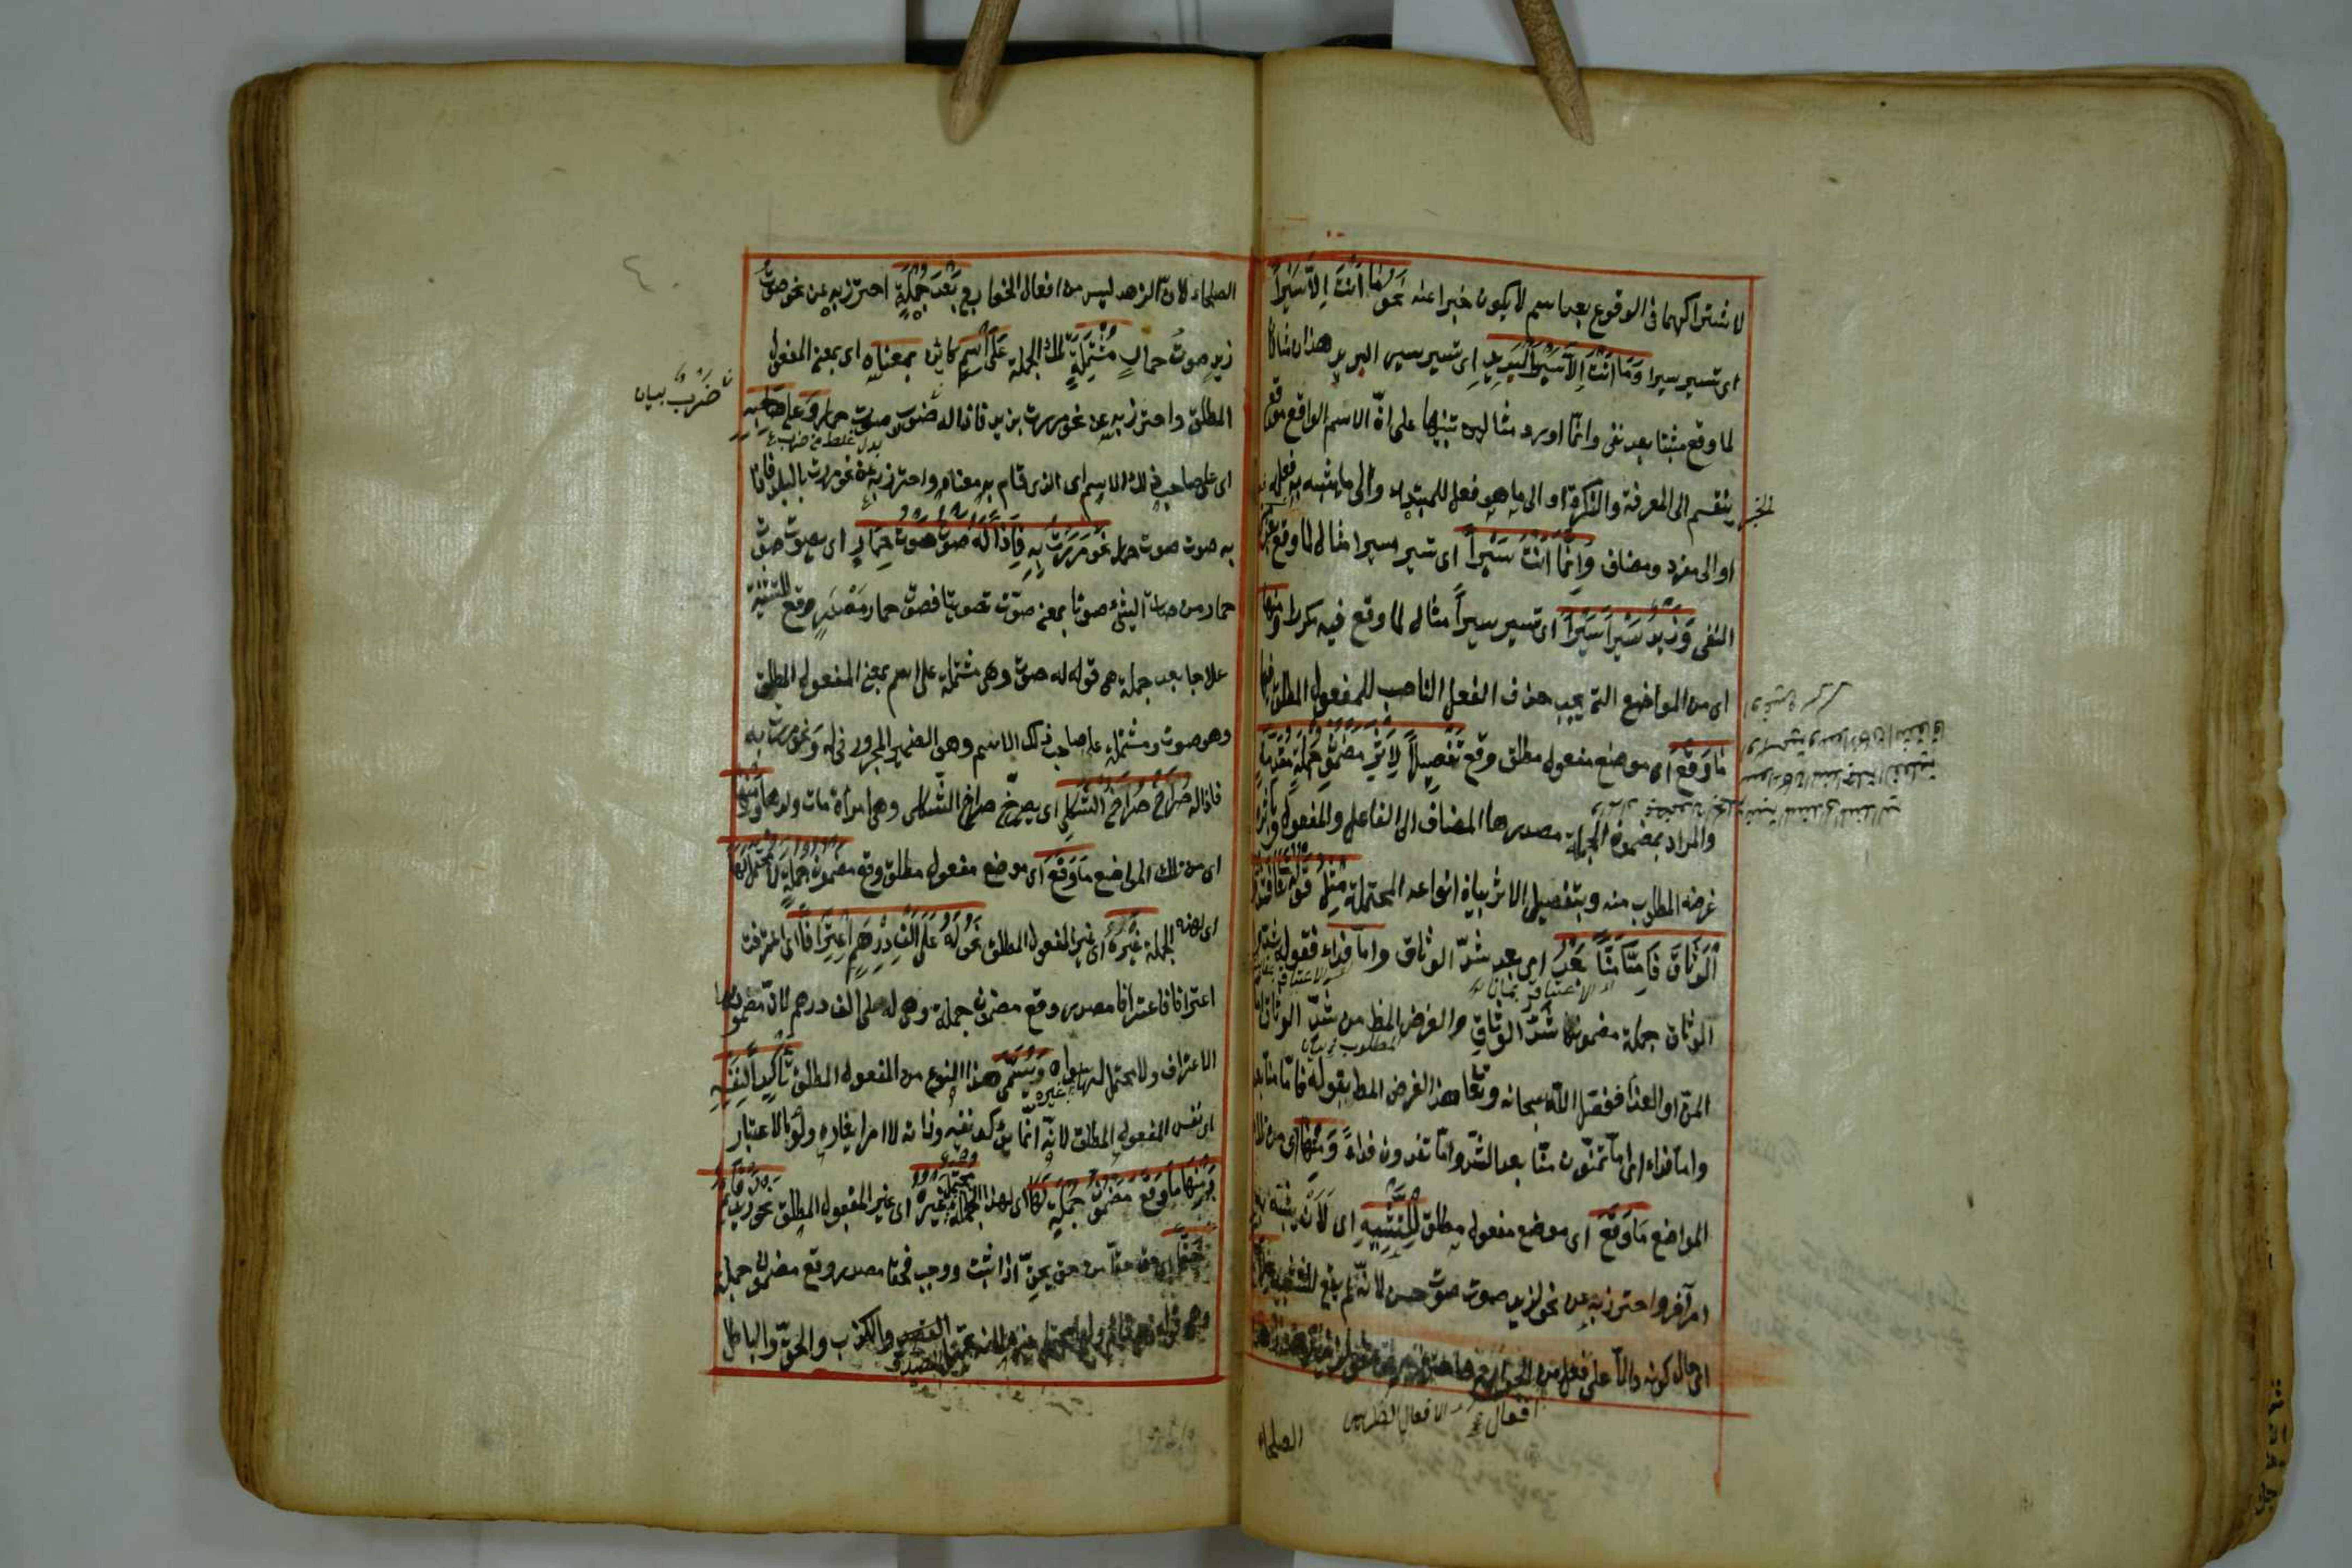 لاشتراكهما فى الوقوع بعد اسم لا يكون خبرا عنه نحو مَا أَنْتَ إِلاَّ سَيْراً
اى تسير سيرا وَمَا أَنْتَ إِلاَّ سَيْرَ الْبَرِيدِ اى تسير سير البريد هذان مثالان
لما وقع مثبتا بعد نفى وانّما اورد مثالين تنبيها على انّ الاسم الواقع موقع
الخبر ينقسم الى المعرفة والنكرة او الى ما هو فعل للمبتدء والى ما يشبه به فعله
او الى مفرد ومضاف وَإِنَّمَا أَنْتَ سَيْراً اى تسير سيرا مثال لما وقع بعد معنى
النفى وَزَيْدٌ سَيْراً سَيْراً اى تسير سيراً مثال لما وقع فيه مكررا وَمِنْهَا
اى من المواضع التى يجب حذف الفعل الناصب للمفعول المطلق فيها
مَا وَقَعَ اى موضع مفعول مطلق وقع تَفْصِيلاً لِأَثَرِ مَضْمُونِ جُمْلَةٍ مُتَقَدِّمَةٍ
والمراد بمضمون الجملة مصدرها المضاف الى الفاعل والمفعول وباثره
غرضه المطلوب منه وبتفصيل الاثر بيان انواعه المحتملة مِثْلُ قَوْلِهِ تَعَالَى فَشُدُّوا
الْوَثَاقَ فَإِمَّا مَنّاً بَعْدُ اى بعد شدّ الوثاق واما فداء فقوله شدّوا
الوثاق جملة مضمونها شدّ الوثاق والغرض المط من شدّ الوثاق اما
المنّ او الفداء ففصّل اللّه سبحانه وتعا هذا الغرض المط بقوله فامّا منّا بعد
واما فداء اى امّا تمنّون منّا بعد الشدّ وامّا تفدون فداءً وَمِنْهَا اى من تلك
المواضع مَا وَقَعَ اى موضع مفعول مطلق لِلتَّشْبِيهِ اى لأن يشبّه به
امر آخر واحترز به عن نحو لزيد صوت صوت حسن لانّه لم يقع للتشبيه عِلَاجاً
اى حال كونه دالاّ على فعل من افعال الجوارح واحترز به عن نحو لزيد زهد زهد
الصلحاء
الصلحاء لانّ الزهد ليس من افعال الجوارح بَعْدَ جُمْلَةٍ احترز به عن نحو صوت
زيد صوت حمار مُشْتَمِلَةٍ تلك الجملة عَلَى اسْمٍ كائن بِمَعْنَاهُ اى بمعنى المفعول
المطلق واحترز به عن نحو مررت بزيد فاذا له ضرب صوت حمار وَعَلَى صَاحِبِهِ
اى على صاحب ذلك الاسم اى الذى قام به معناه واحترز به عن نحو مررت بالبلد فاذا
به صوت صوت حمار نَحْوُ مَرَرْتُ بِهِ فَإِذَا لَهُ صَوْتٌ صَوْتَ حِمَارٍ اى يصوت صوت
حمار من صات الشئ صوتا بمعنى صوّت تصويتا فصوت حمار مصدر وقع للتشبيه
علاجا بعد جملة هى قوله له صوت وهى مشتملة على اسم بمعنى المفعول المطلق
وهو صوت ومشتملة على صاحب ذلك الاسم وهو الضمير المجرور فى له وَنحو مررت به
فاذا له صُرَاخٌ صُرَاخَ الثَّكْلَى اى يصرخ صراخ الثّكلى وهى امرأة مات ولدها وَمِنْهَا
اى من تلك المواضع مَا وَقَعَ اى موضع مفعول مطلق وقع مَضْمُونَ جُمْلَةٍ لَا مُحْتَمَلَ لَهَا
اى لهذه الجملة غَيْرُهُ اى غير المفعول المطلق نَحْوُ لَهُ عَلَىَّ أَلْفُ دِرْهَمٍ اِعْتِرَافاً اى اعترفت
اعترافا فاعترافا مصدر وقع مضمون جملة وهى له على الف درهم لانّ مضمونها
الاعتراف ولا محتمل لها سواه وَيُسَمَّى هذا النوع من المفعول المطلق تَأْكِيداً لِنَفْسِهِ
اى نفس المفعول المطلق لانّه انّما يؤكد نفسه وذاته لا امرا يغايره ولو بالاعتبار
وَمِنْهَا مَا وَقَعَ مَضْمُونَ جُمْلَةٍ لَهَا اى لهذا الجملة مُحْتَمَلٌ غَيْرُهُ اى غير المفعول المطلق نَحْوُ زَيْدٌ قَائِمٌ
حَقّاً اى حق حقّا من حقّ يحقّ اذا ثبت ووجب فحقا مصدر وقع مضمون جملة
وهى قوله زيد قائم ولها محتمل غيره لانها تحتمل الصدق والكذب والحقّ والباطل
ضَرْبٌ بيان
بدل غلط من ضرب